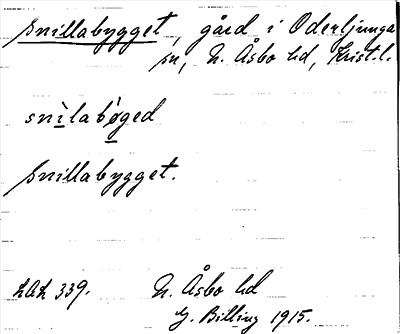 Snillabygget, gård i Oderljunga
sn, N. Åsbo hd, Krist. l.
snìlabø̀ged
Snillabygget.
LAL 339. N. Åsbo hd
G. Billing 1915.